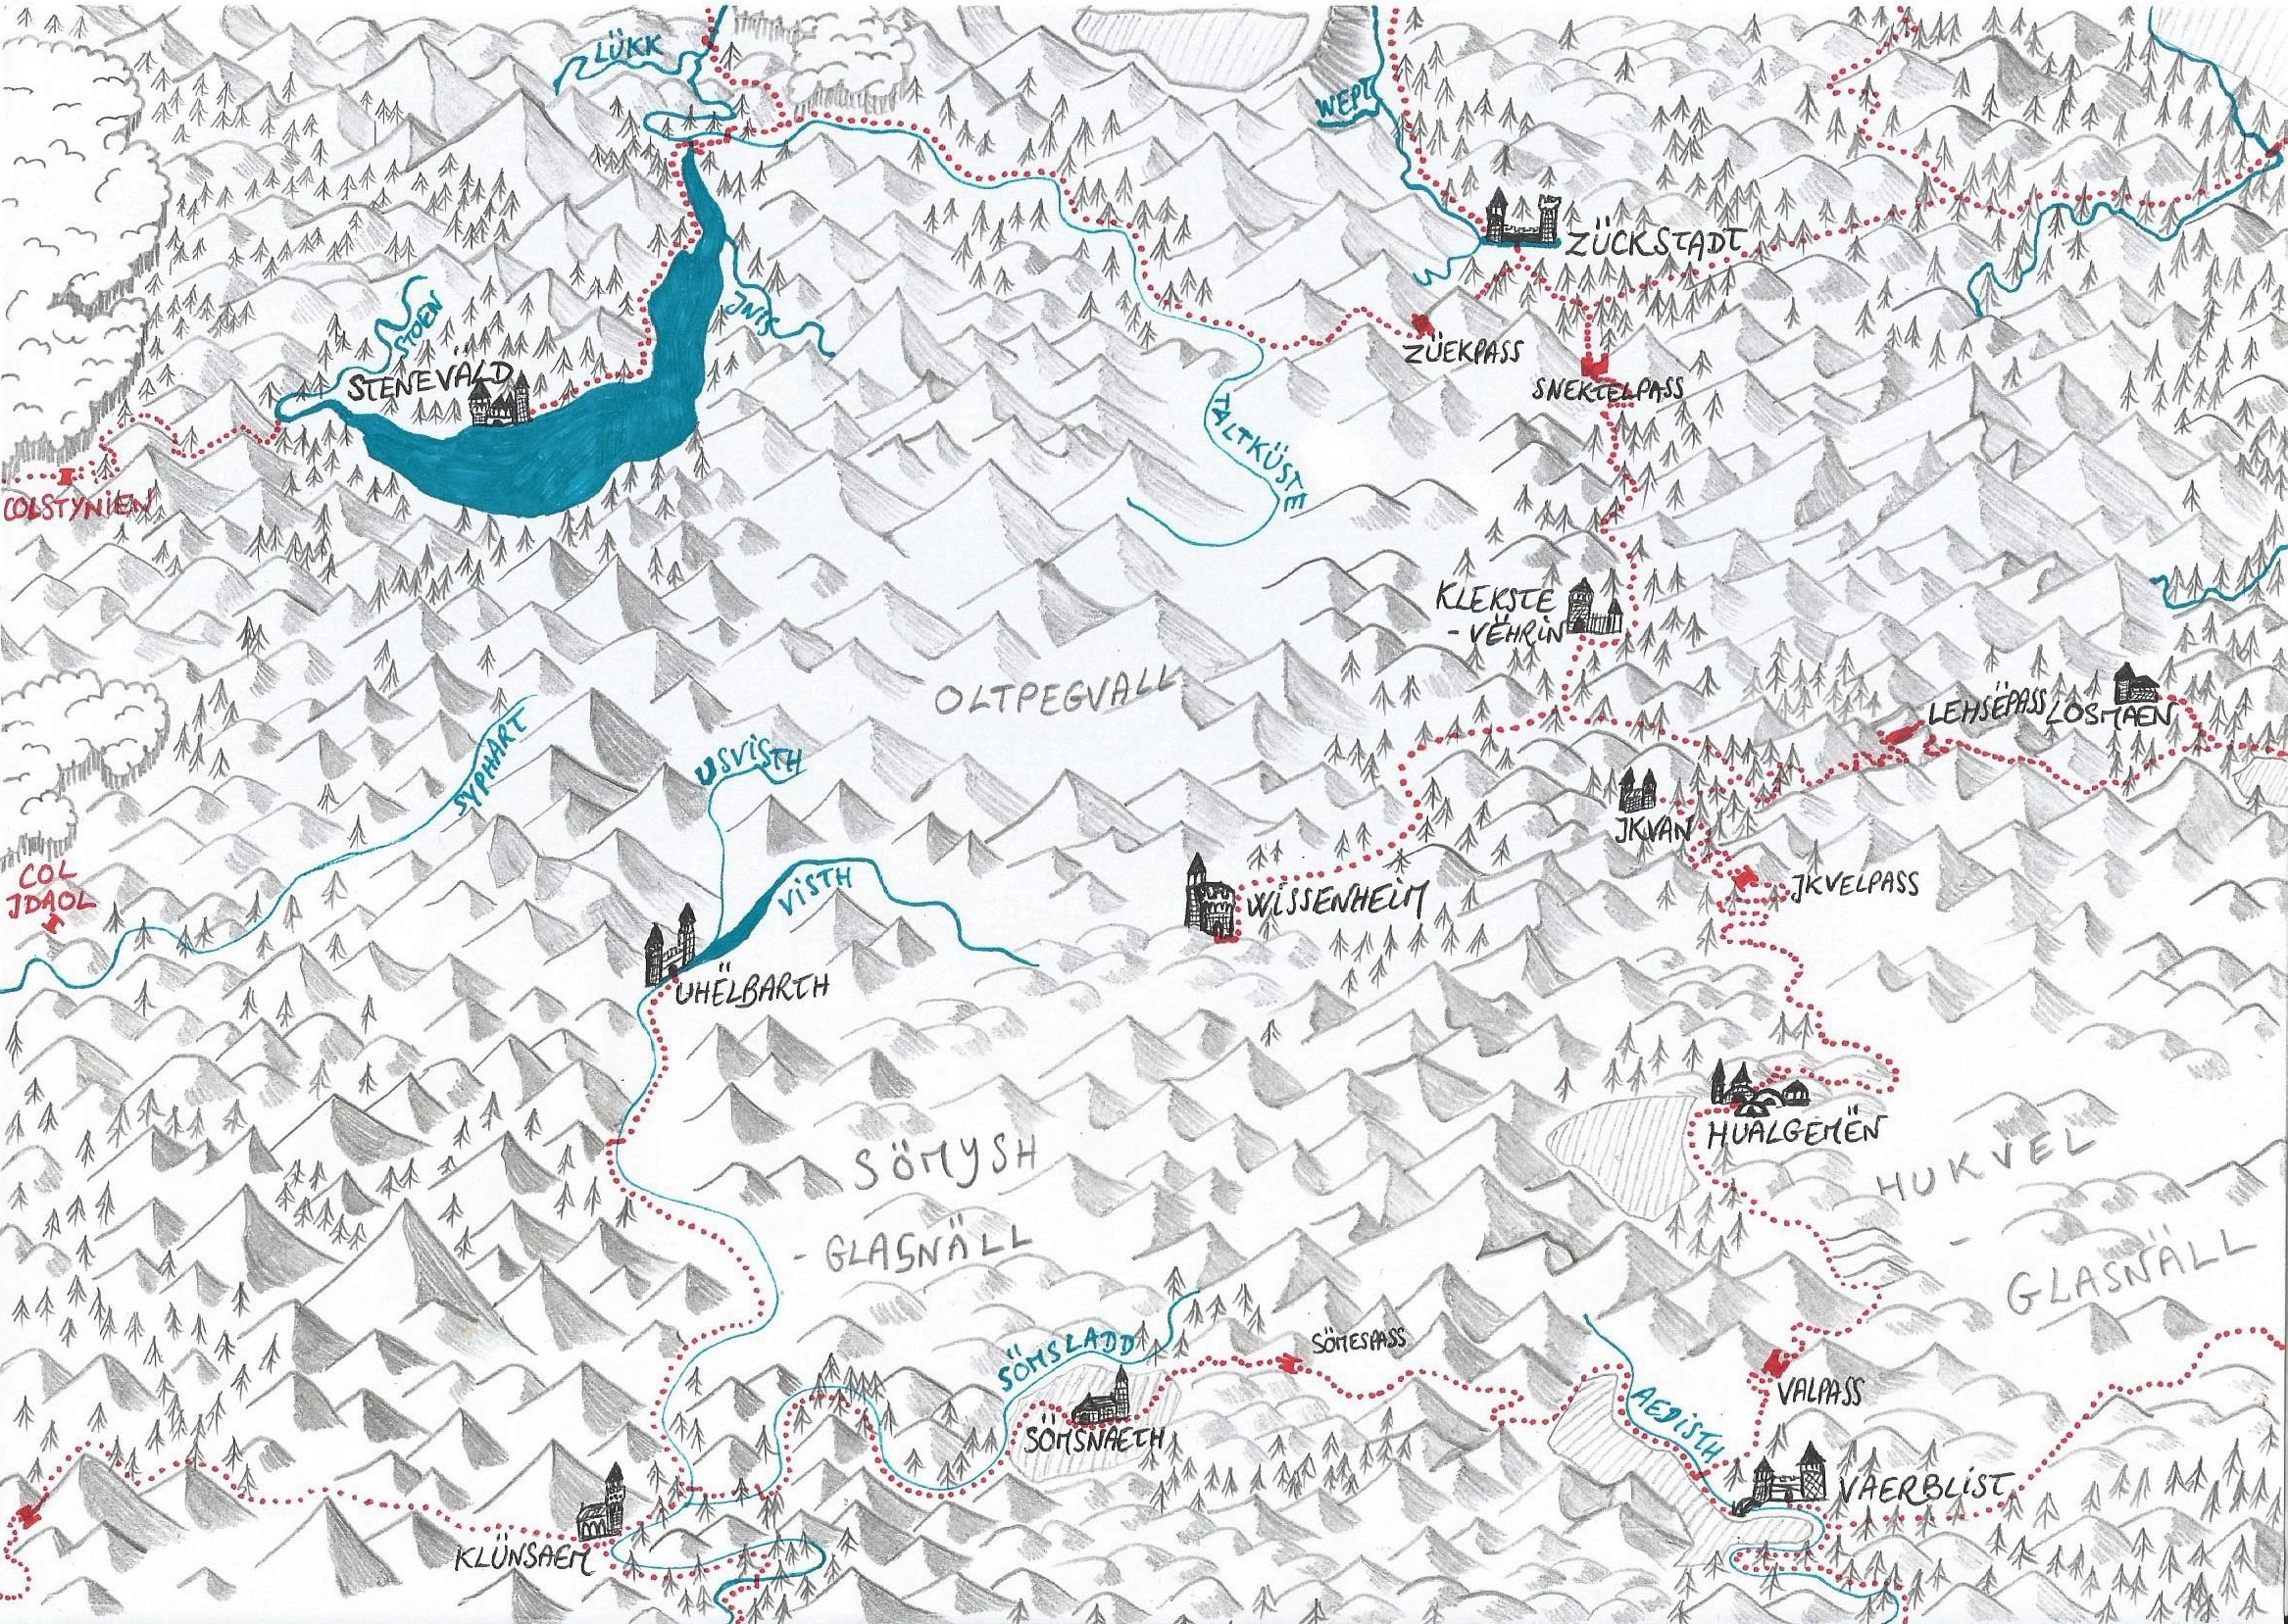 LÜKK
WEPT
ZÜCKSTADT
STOEN
JNIK
STENEVÄLD
ZÜEKPASS
SNEKTELPASS
TALTKÜSTE
COLSTYNIEN
KLEKSTE
-VËHRIN
OLTPEGVALL
LEHSËPASS
LOSMAEN
SYPHART
USVISTH
JKVAN
COL
JDAOL
VISTH
WISSENHEIM
JKVELPASS
UHËLBARTH
HUALGEMËN
SÖMYSH
-GLASNÄLL
HUKVEL
- GLASNÄLL
SÖMSLADD
SÖMESPASS
VALPASS
AEDISTH
SÖMSNAETH
VAERBLIST
KLÜNSAEM